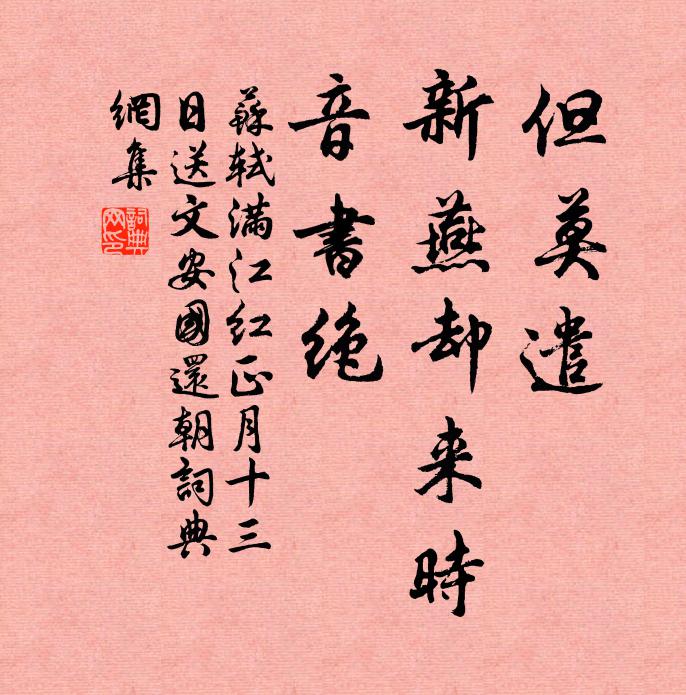 但莫遣
新燕却来時
音書絶
蘇軾滿江紅正月十三
日送文安國還朝詞典
網集
詞典网印